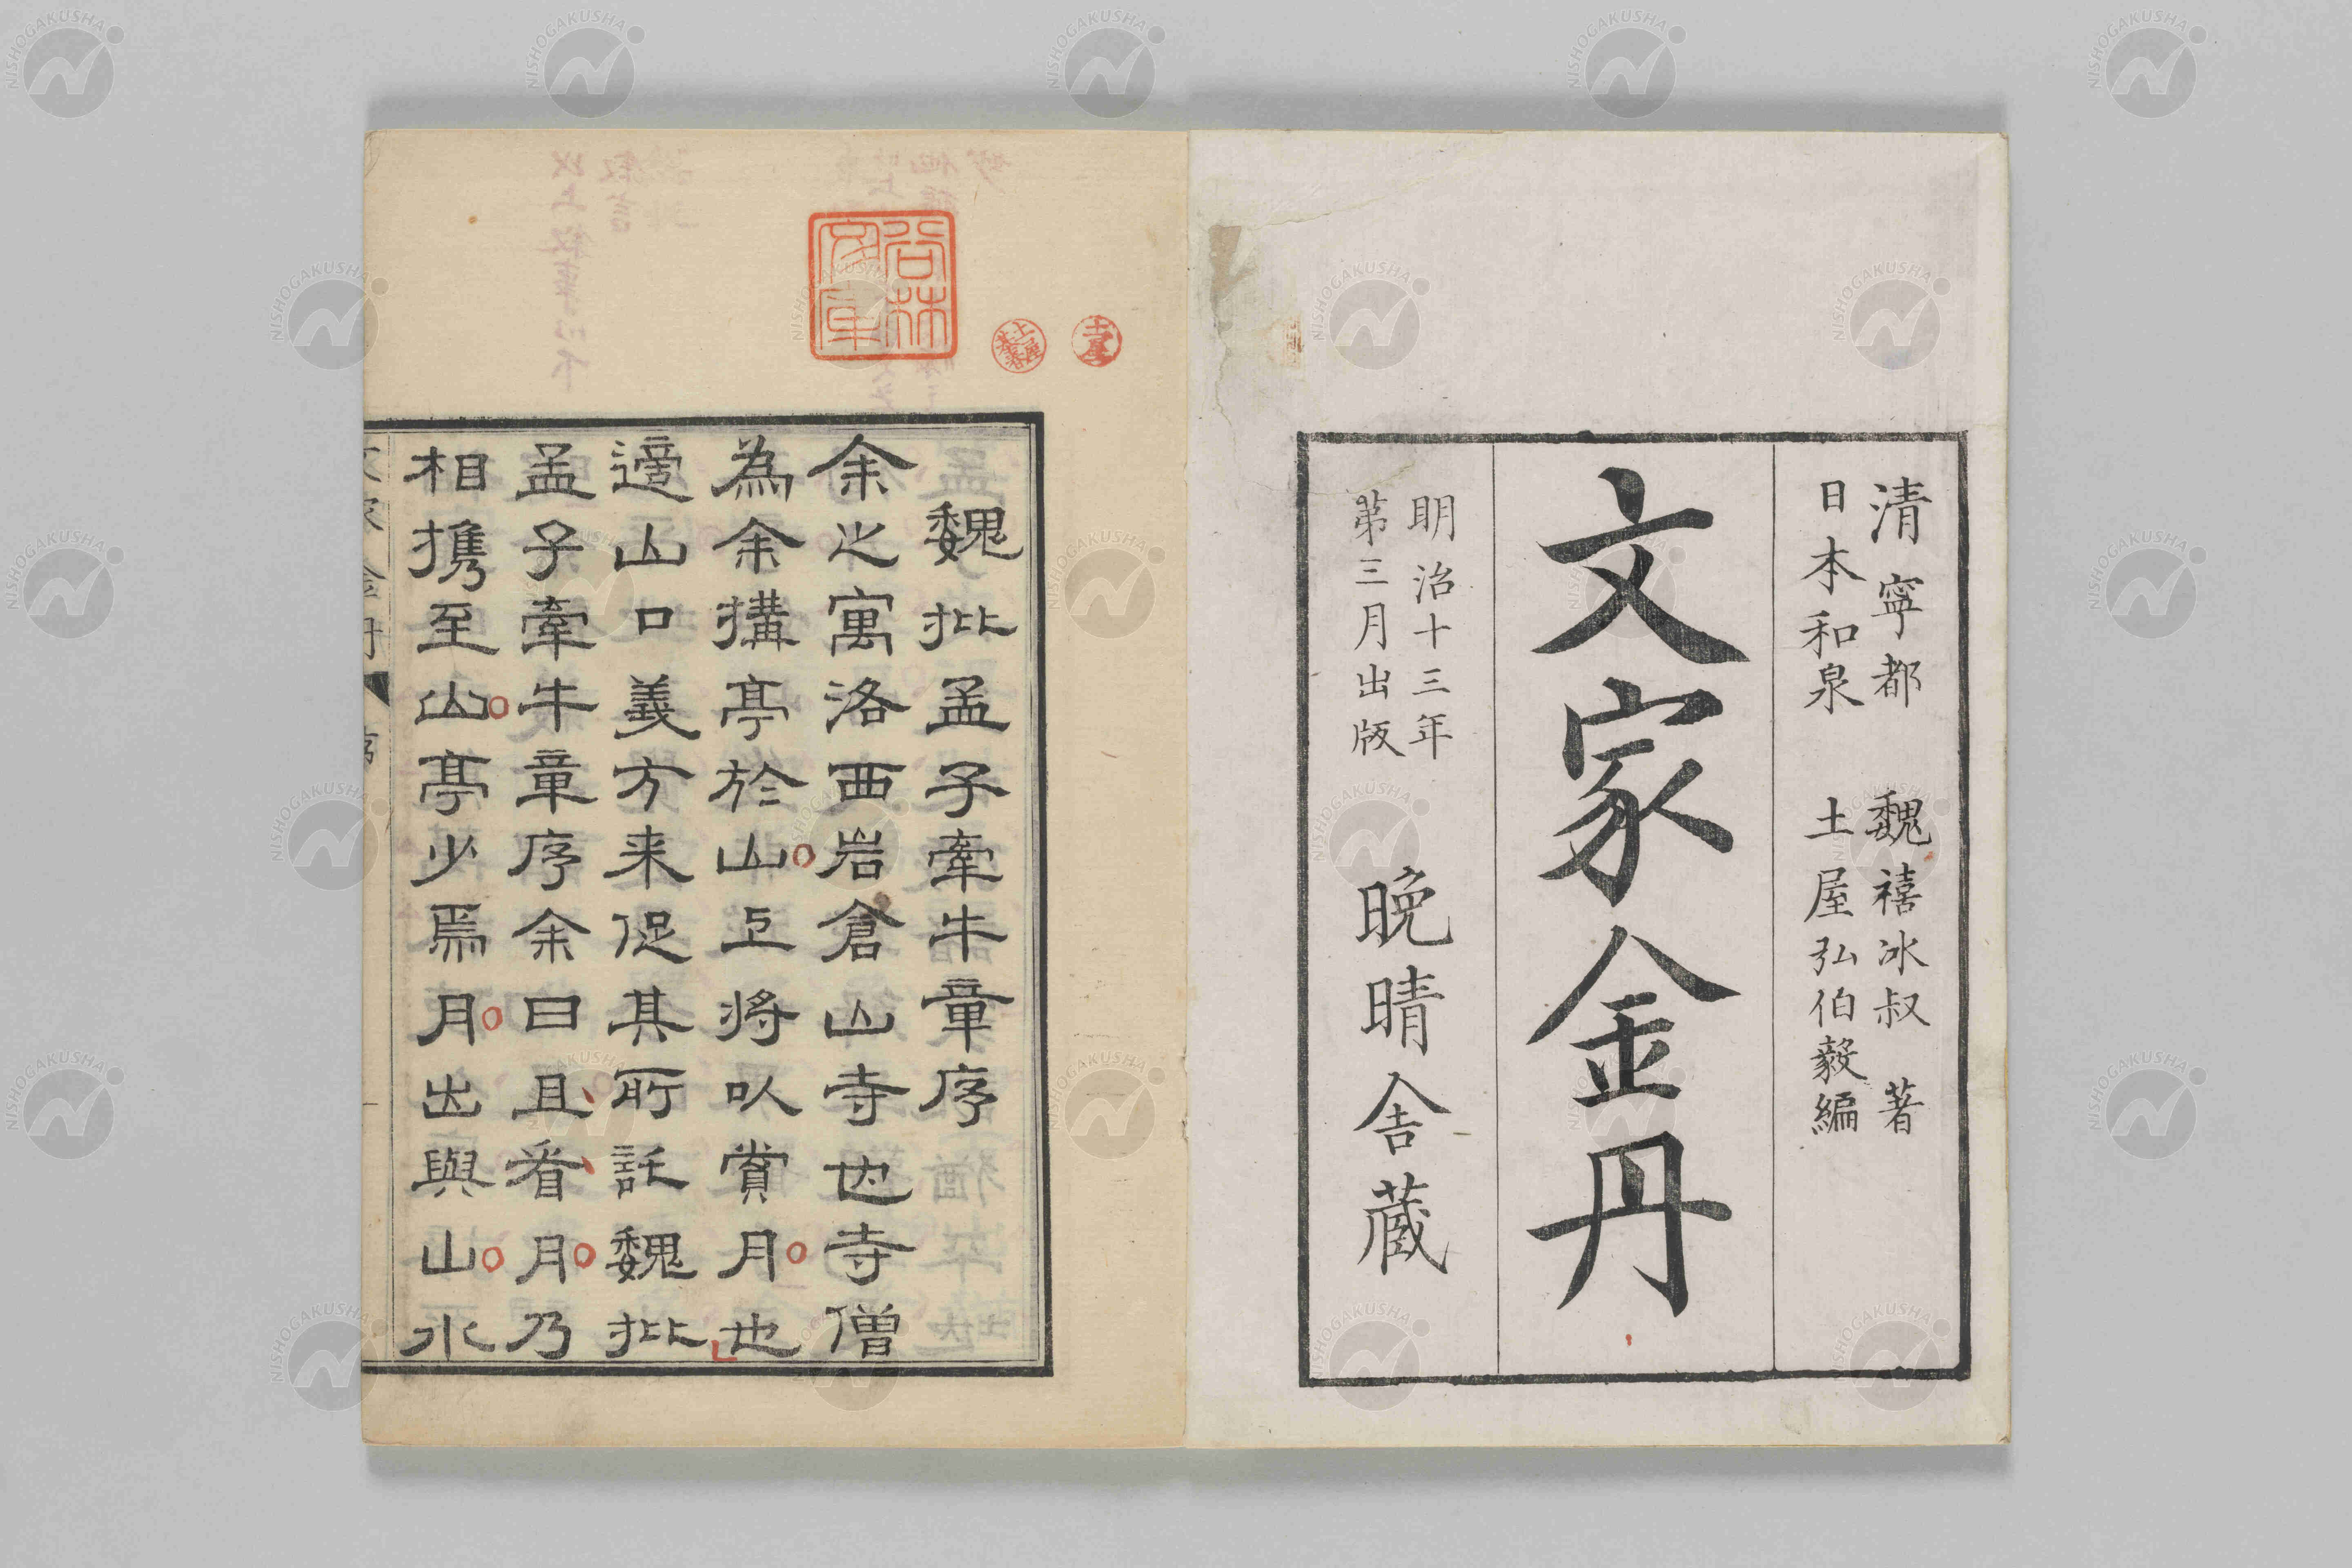 清寧都 魏禧冰叔 著
日本和泉 土屋弘伯毅編
文家金丹
明治十三年
第三月出版
晩晴舎蔵
魏批孟子牽牛章序
余之寓洛西岩倉山寺也寺僧
為余搆亭於山上将以賞月也
適山口義方来促其所託魏批
孟子牽牛章序余曰且看月乃
相携至山亭少焉月出與山水
NISHOGAKUSHA